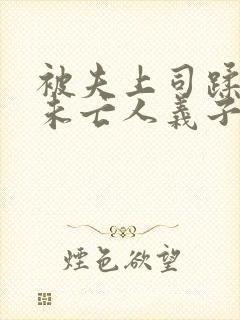 被夫上司蹂
未亡人義子
煙色欲望